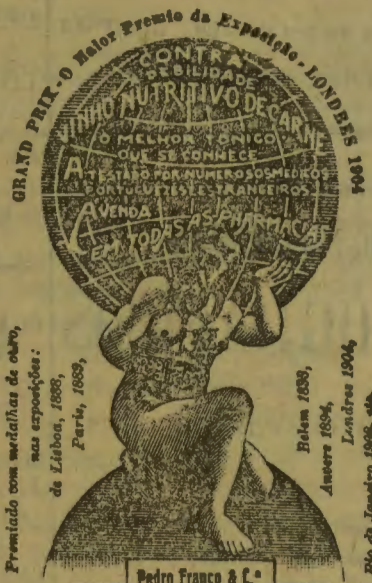 GRAND PRIX-O Maior Premio da Exposição-LONDRES 1904
CONTRA
DEBILIDADE
VINHO NUTRITIVO DE CARNE
O MELHOR TONICO
QUE SE CONHECE
ATESTADO POR NUMEROSOS MEDICOS
PORTUGUEZES E ESTRANGEIROS
Á VENDA
EM TODAS AS PHARMACIAS
Premiado com medalhas de ouro,
nas exposições:
de Lisboa, 1888,
Paris, 1889,
Belem 1893,
Anvers 1894,
Londres 1904,
Rio de Janeiro 1908,
Pedro Franco & C.ª